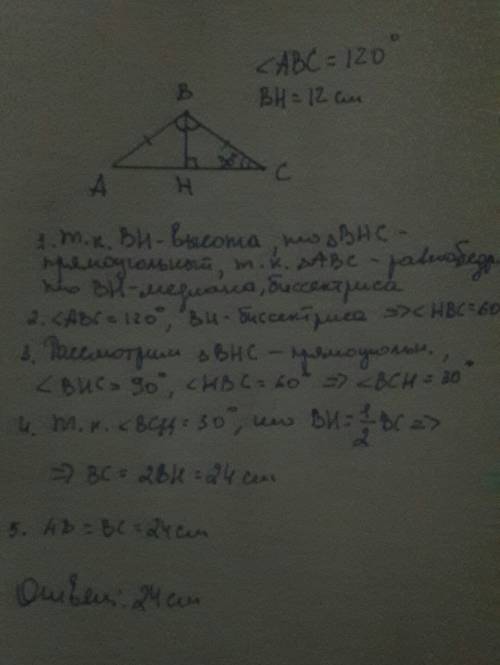 ∠ABC = 120°
BH = 12 см
B
A
H
C
1. Т.к. BH - высота, то △BHC -
прямоугольный, т.к. △ABC - равнобедр.
то BH - медиана, биссектриса
2. ∠ABC = 120°, BH - биссектриса => ∠HBC = 60
3. Рассмотрим △BHC - прямоугольн.,
∠BHC = 90°, ∠HBC = 60° => ∠BCH = 30°
4. Т.к. ∠BCH = 30°, то BH = 1/2 BC =>
=> BC = 2BH = 24 см
5. AB = BC = 24 см
Ответ: 24 см